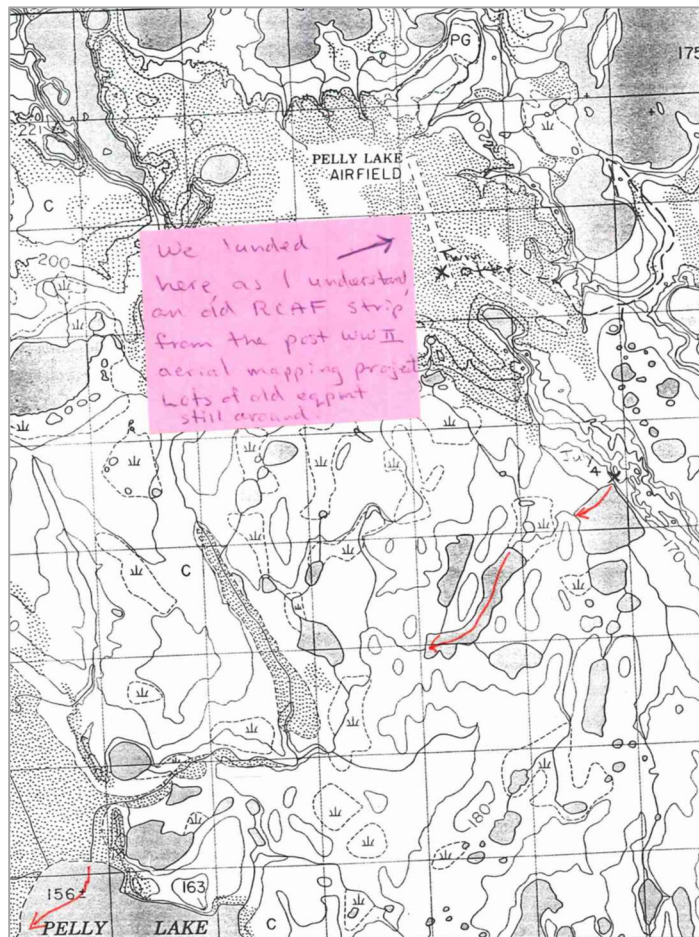 PG
175
221
PELLY LAKE
AIRFIELD
C
200
We landed
here as I understand,
an old RCAF strip
from the post WW II
aerial mapping project
Lots of old eqpmt
still around.
Twin
Otter
July
4
C
180
163
156±
PELLY LAKE
C